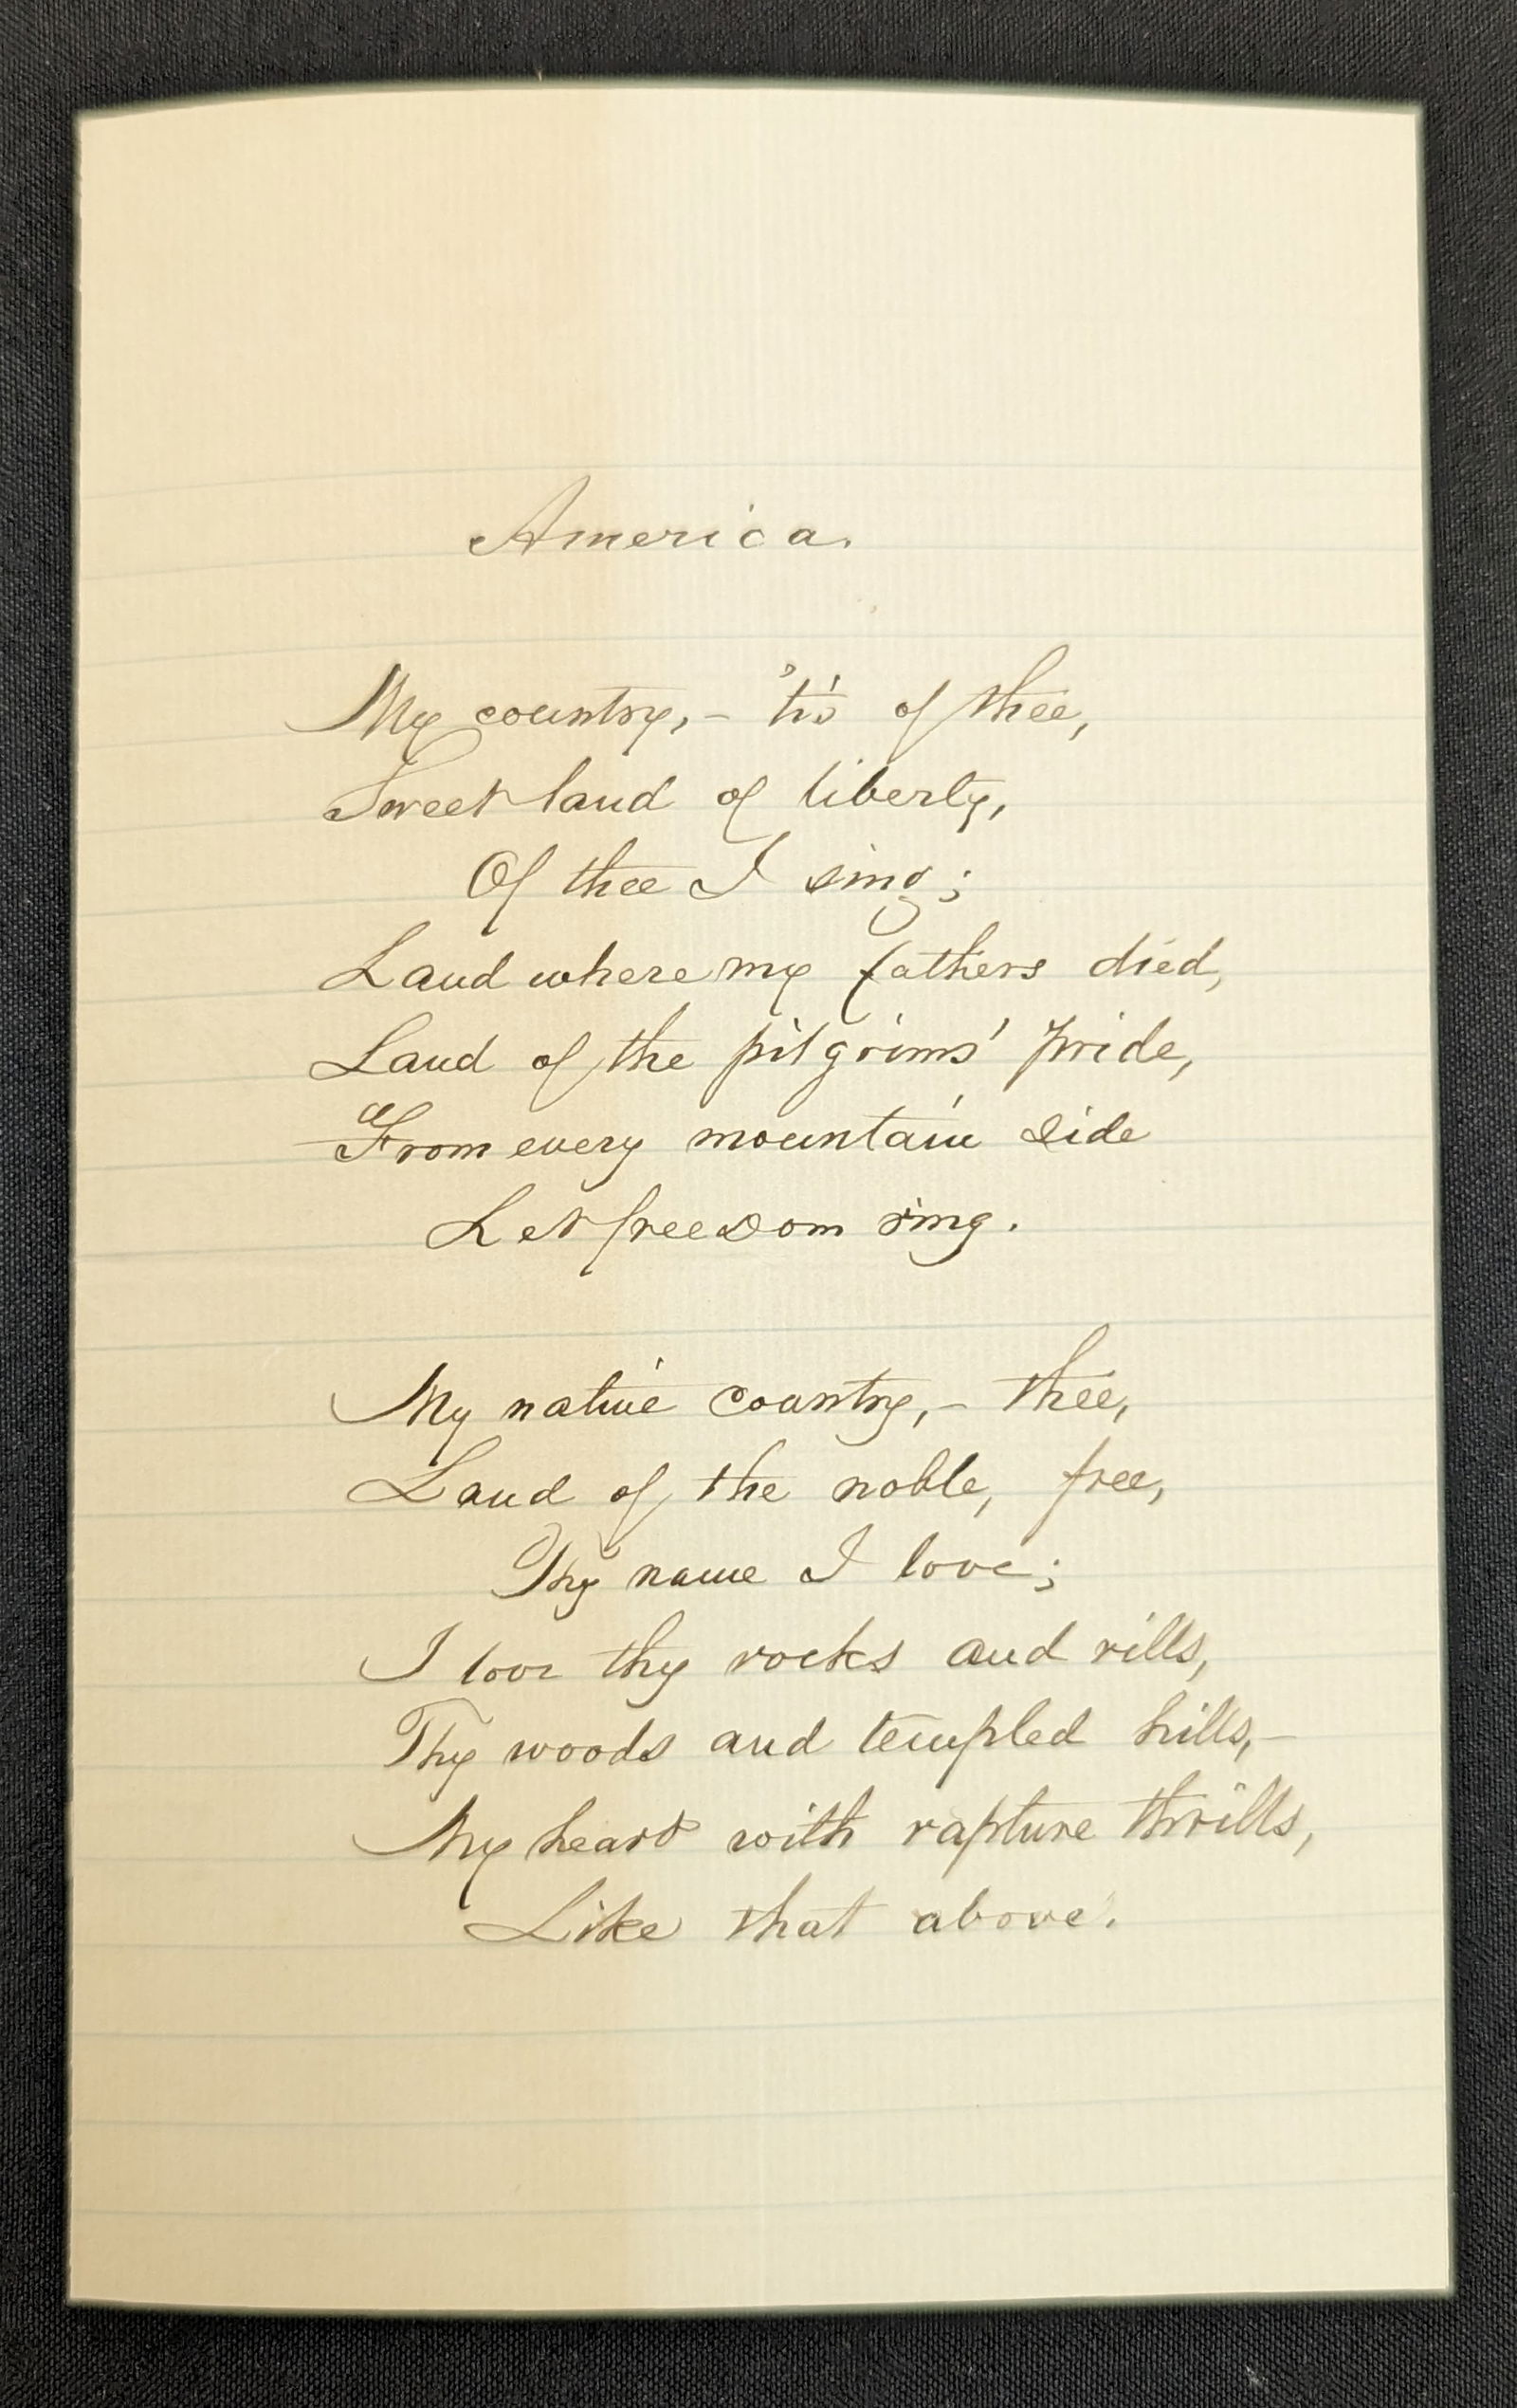 America.
My country, – 'tis of thee,
Sweet land of liberty,
Of thee I sing;
Land where my fathers died,
Land of the pilgrims' pride,
From every mountain side
Let freedom ring.
My native country, – thee,
Land of the noble, free,
Thy name I love;
I love thy rocks and rills,
Thy woods and templed hills, –
My heart with rapture thrills,
Like that above.